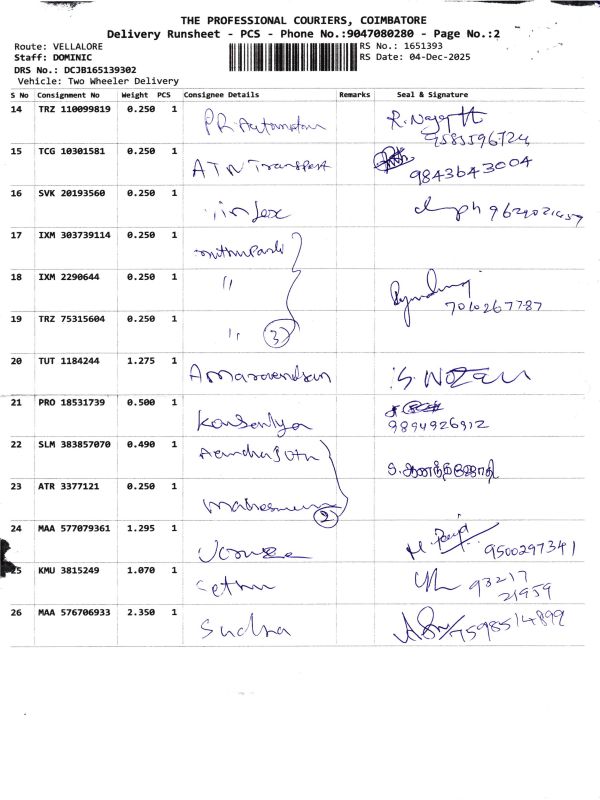 THE PROFESSIONAL COURIERS, COIMBATORE
Delivery Runsheet - PCS - Phone No.:9047080280 - Page No.:2
Route: VELLALORE
RS No.: 1651393
Staff: DOMINIC
RS Date: 04-Dec-2025
DRS No.: DCJB165139302
Vehicle: Two Wheeler Delivery
S No Consignment No Weight PCS Consignee Details Remarks Seal & Signature
14 TRZ 110099819 0.250 1 PR. Automation
9585596724
15 TCG 10301581 0.250 1 ATN Transport
9843643004
16 SVK 20193560 0.250 1
17 IXM 303739114 0.250 1
18 IXM 2290644 0.250 1 "
7010267787
19 TRZ 75315604 0.250 1 " 3
20 TUT 1184244 1.275 1
21 PRO 18531739 0.500 1 Kousalya
9894926912
22 SLM 383857070 0.490 1
23 ATR 3377121 0.250 1
2
24 MAA 577079361 1.295 1
9500297341
25 KMU 3815249 1.070 1 Sethu 93217
21959
26 MAA 576706933 2.350 1 Sudha 7598514899